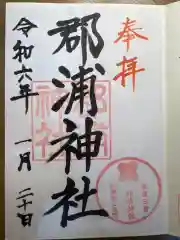 奉拝
郡浦神社
令和六年 一月 二十日